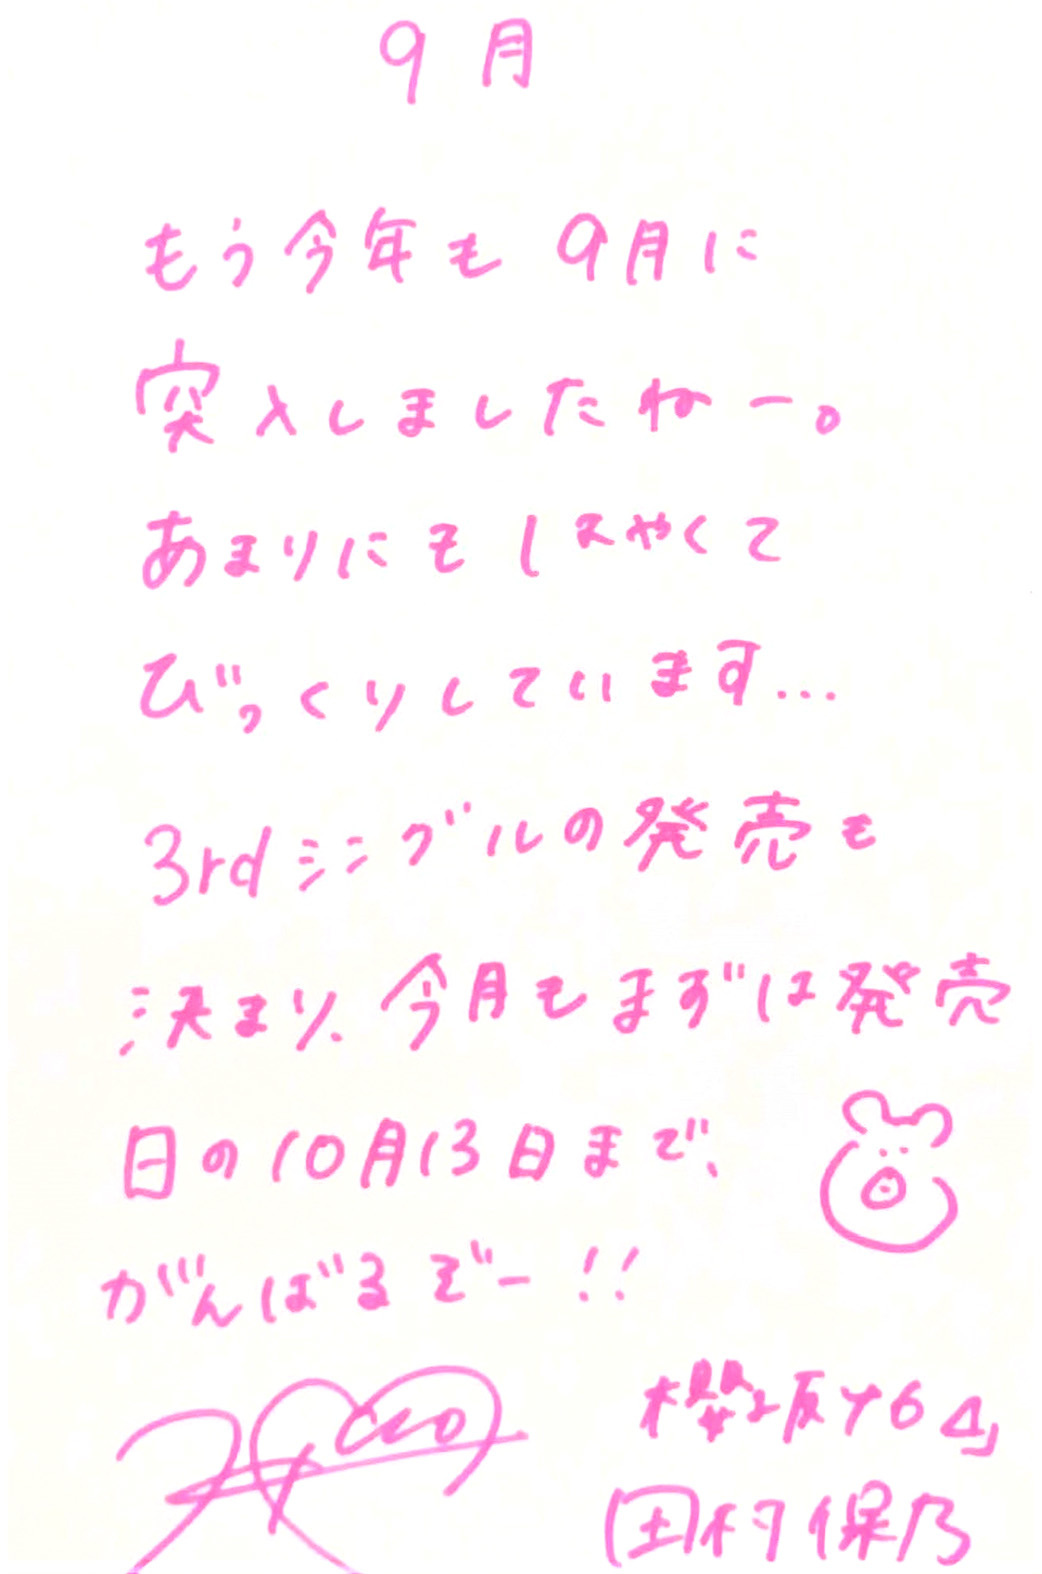 9月
もう今年も9月に
突入しましたねー。
あまりにもはやくて
びっくりしています...
3rdシングルの発売も
決まり、今月もまずは発売
日の10月13日まで、
がんばるぞー!!
櫻坂46
田村保乃